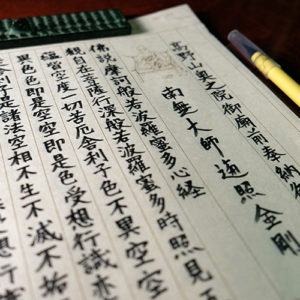 高野山奥之院御廟前奉納
南無大師遍照金剛
佛説摩訶般若波羅蜜多心経
観自在菩薩行深般若波羅蜜多時照見
蘊皆空度一切苦厄舎利子色不異空空
異色色即是空空即是色受想行識亦
舎利子是諸法空相不生不滅不垢
想行